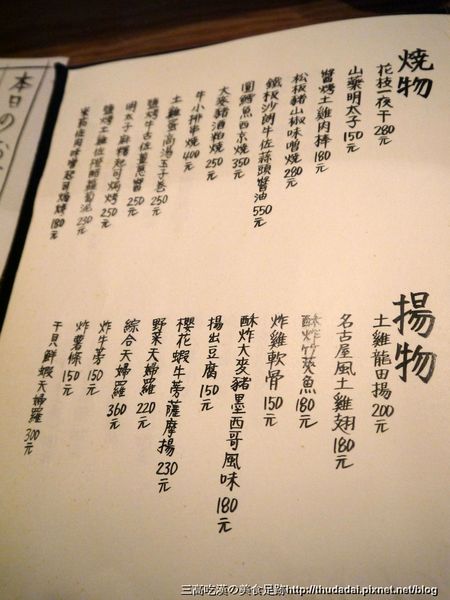 燒物
花枝一夜干 280元
山藥明太子 150元
醬烤土雞肉棒 180元
松板豬山椒味噌燒 280元
鐵板沙朗牛佐蒜頭醬油 550元
圓鱈魚西京燒 350元
大麥豬酒粕燒 250元
牛小排串燒 400元
土雞蛋高湯玉子卷 250元
鹽烤牛舌佐薑蔥醬 250元
明太子麻糬起司焗烤 250元
鹽烤土雞佐柑醋蘿蔔泥 230元
起司焗烤 180元
揚物
土雞龍田揚 200元
名古屋風土雞翅 180元
酥炸竹莢魚 180元
炸雞軟骨 150元
酥炸大麥豬墨西哥風味 180元
揚出豆腐 150元
櫻花蝦牛蒡薩摩揚 230元
野菜天婦羅 220元
綜合天婦羅 360元
炸牛蒡 150元
炸薯條 150元
干貝鮮蝦天婦羅 300元
本日の
三高吃漢の美食足跡http://thudadai.pixnet.net/blog